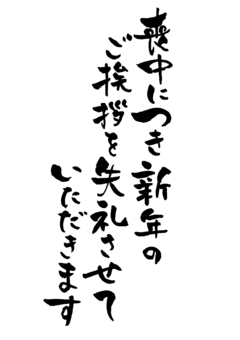 喪中につき新年の
ご挨拶を失礼させて
いただきます